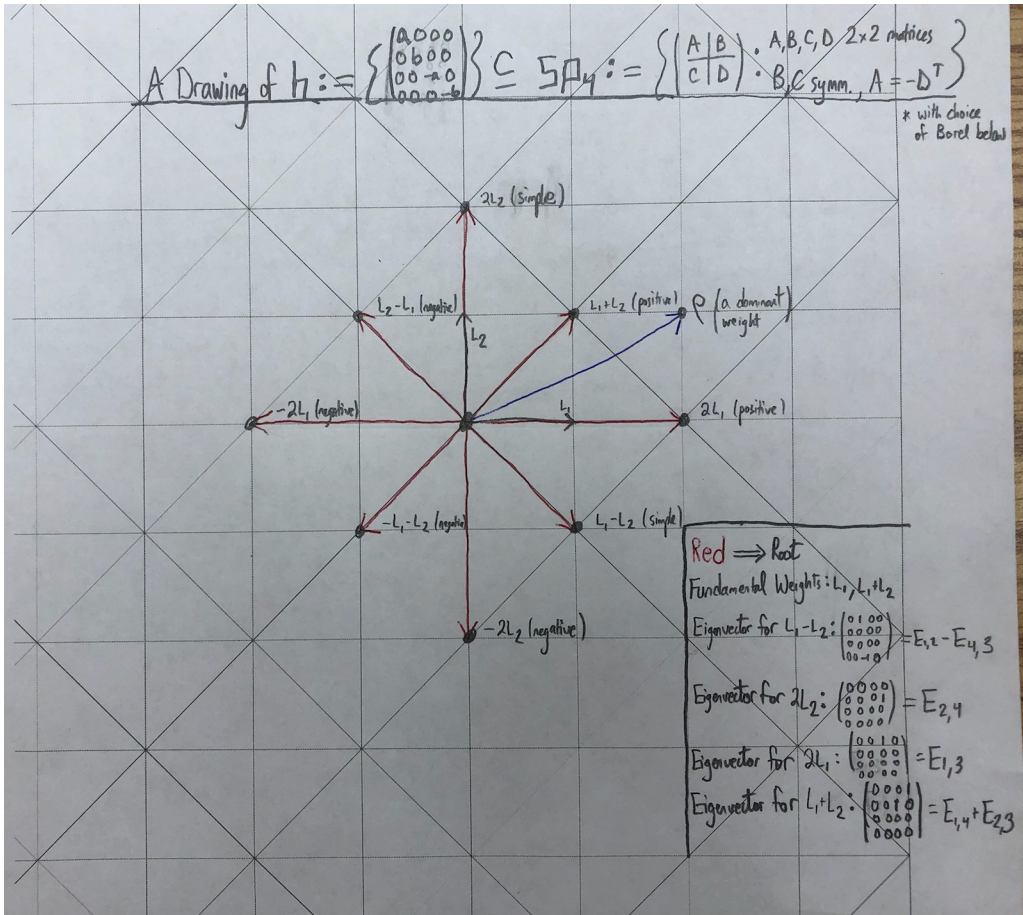 A Drawing of h := {(a 0 0 0
0 b 0 0
0 0 -a 0
0 0 0 -b)} ⊆ Sp₄ := {(A|B
C|D) : A,B,C,D 2x2 matrices
: B,C symm., A = -Dᵀ}
* with choice
of Borel below
2L₂ (simple)
L₂-L₁ (negative)
L₁+L₂ (positive)
ρ (a dominant
weight)
L₂
-2L₁ (negative)
L₁
2L₁ (positive)
-L₁-L₂ (negative)
L₁-L₂ (simple)
-2L₂ (negative)
Red ⟹ Root
Fundamental Weights: L₁, L₁+L₂
Eigenvector for L₁-L₂: (0 1 0 0
0 0 0 0
0 0 0 0
0 0 -1 0) = E₁,₂ - E₄,₃
Eigenvector for 2L₂: (0 0 0 0
0 0 0 1
0 0 0 0
0 0 0 0) = E₂,₄
Eigenvector for 2L₁: (0 0 1 0
0 0 0 0
0 0 0 0
0 0 0 0) = E₁,₃
Eigenvector for L₁+L₂: (0 0 0 1
0 0 1 0
0 0 0 0
0 0 0 0) = E₁,₄ + E₂,₃